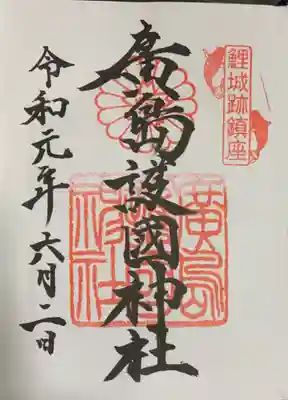 鯉城跡鎮座
廣島護國神社
令和元年六月二日
廣島護國神社